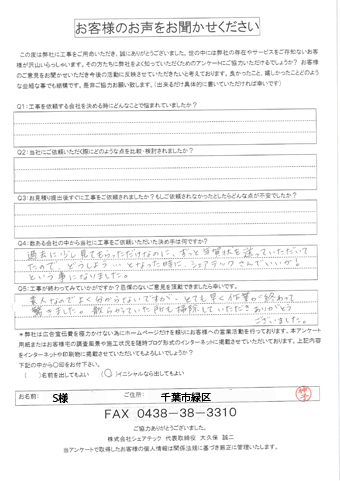 お客様のお声をお聞かせください
この度は弊社に工事をご用命いただき、誠にありがとうございました。世の中には弊社の存在やサービスをご存知ないお客
様が沢山いらっしゃいます。その方たちに弊社をよく知っていただくためのアンケートにご協力いただけるでしょうか？ お客様
のご意見をお聞かせいただき今後の活動に反映させていただきたいと考えております。良かったこと、嬉しかったことどのよう
な些細な事でも結構です。是非ご協力お願い致します。（出来るだけ具体的に書いていただければ幸いです）
Q1：工事を依頼する会社を決める時にどんなことで悩まれていましたか？
Q2：当社にご依頼いただく際にどのような点を比較・検討されましたか？
Q3：お見積り提出後すぐに工事をご依頼されましたか？もしご依頼されなかったとしたらどんな点が不安でしたか？
Q4：数ある会社の中から当社に工事をご依頼いただいた決め手は何ですか？
過去に少し見てもらっただけなのに、ずっと年賀状を送っていただいて
たので、どうしよう…となった時に、シェアテックさんでいいか！
という事になりました。
Q5：工事が終わってみていかがですか？忌憚のないご意見を頂戴できましたら幸いです。
素人なのでよく分からないですが、とても早く作業が終わって
驚きました。散らかっていた所も掃除していただきありがとう
ございました。
＊弊社は広告宣伝費を極力かけない為にホームページだけを頼りにお客様への営業活動を行っております。本アンケート
用紙またはお客様宅の調査風景や施工状況を随時ブログ形式のインターネットに掲載させていただいております。上記内容
をインターネットや印刷物に掲載させていただいてもよろしいでしょうか？
下記の中から〇印をお付下さい。
（　）名前を出してもよい　（〇）イニシャルなら出してもよい
お名前： S様　ご住所： 千葉市緑区
FAX 0438-38-3310
ご協力ありがとうございました。
株式会社シェアテック 代表取締役 大久保 誠二
当アンケートで取得したお客様の個人情報は関係法規に基づき厳正に管理いたします。